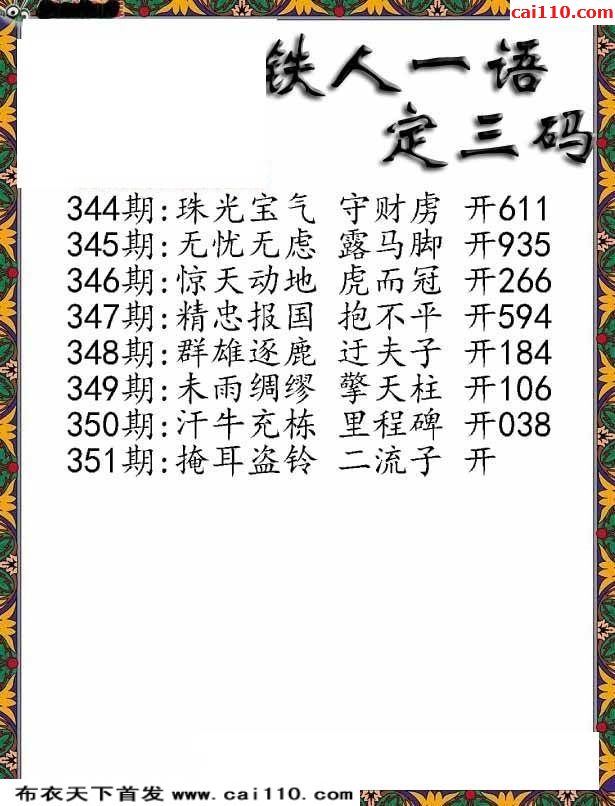 cai110.com
铁人一语
定三码
344期:珠光宝气 守财虏 开611
345期:无忧无虑 露马脚 开935
346期:惊天动地 虎而冠 开266
347期:精忠报国 抱不平 开594
348期:群雄逐鹿 迂夫子 开184
349期:未雨绸缪 擎天柱 开106
350期:汗牛充栋 里程碑 开038
351期:掩耳盗铃 二流子 开
布衣天下首发 www.cai110.com